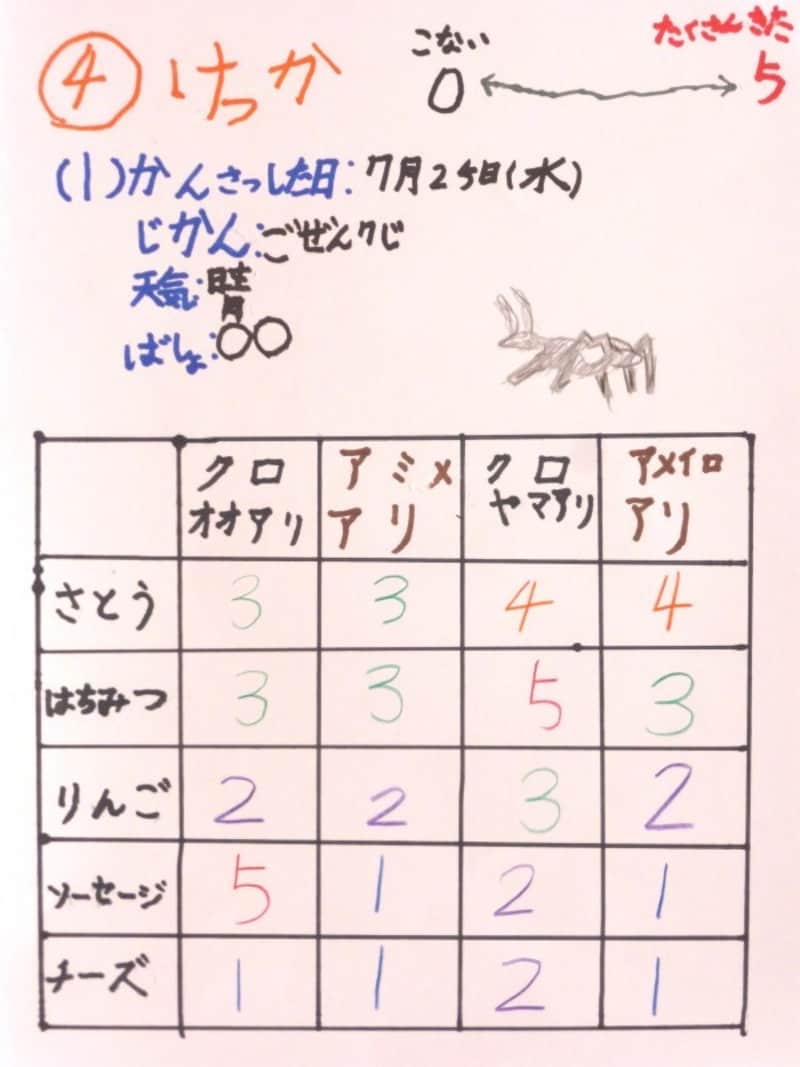 ④ けっか
こない たくさんきた
0 5
(1)かんさつした日:7月25日(水)
じかん:ごぜん9じ
天気:晴
ばしょ:○○
クロ アミメ クロ アメイロ
オオアリ アリ ヤマアリ アリ
さとう 3 3 4 4
はちみつ 3 3 5 3
りんご 2 2 3 2
ソーセージ 5 1 2 1
チーズ 1 1 2 1